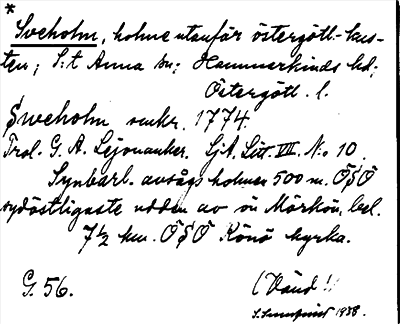 *
Sveholm, holme utanför östergötl. kus-
ten; S:t Anna sn; Hammarkinds hd;
Östergötl. l.
Sweholm omkr. 1774.
Trol. G. A. Lejonanker. Sjk. Litt. VII. N:o 10
Synbarl. avsågs holmen 500 m. ÖSÖ
sydöstligaste udden av ön Mörkön, bel.
7½ km. ÖSÖ Rönö kyrka.
G. 56. (Vänd!)
1938.